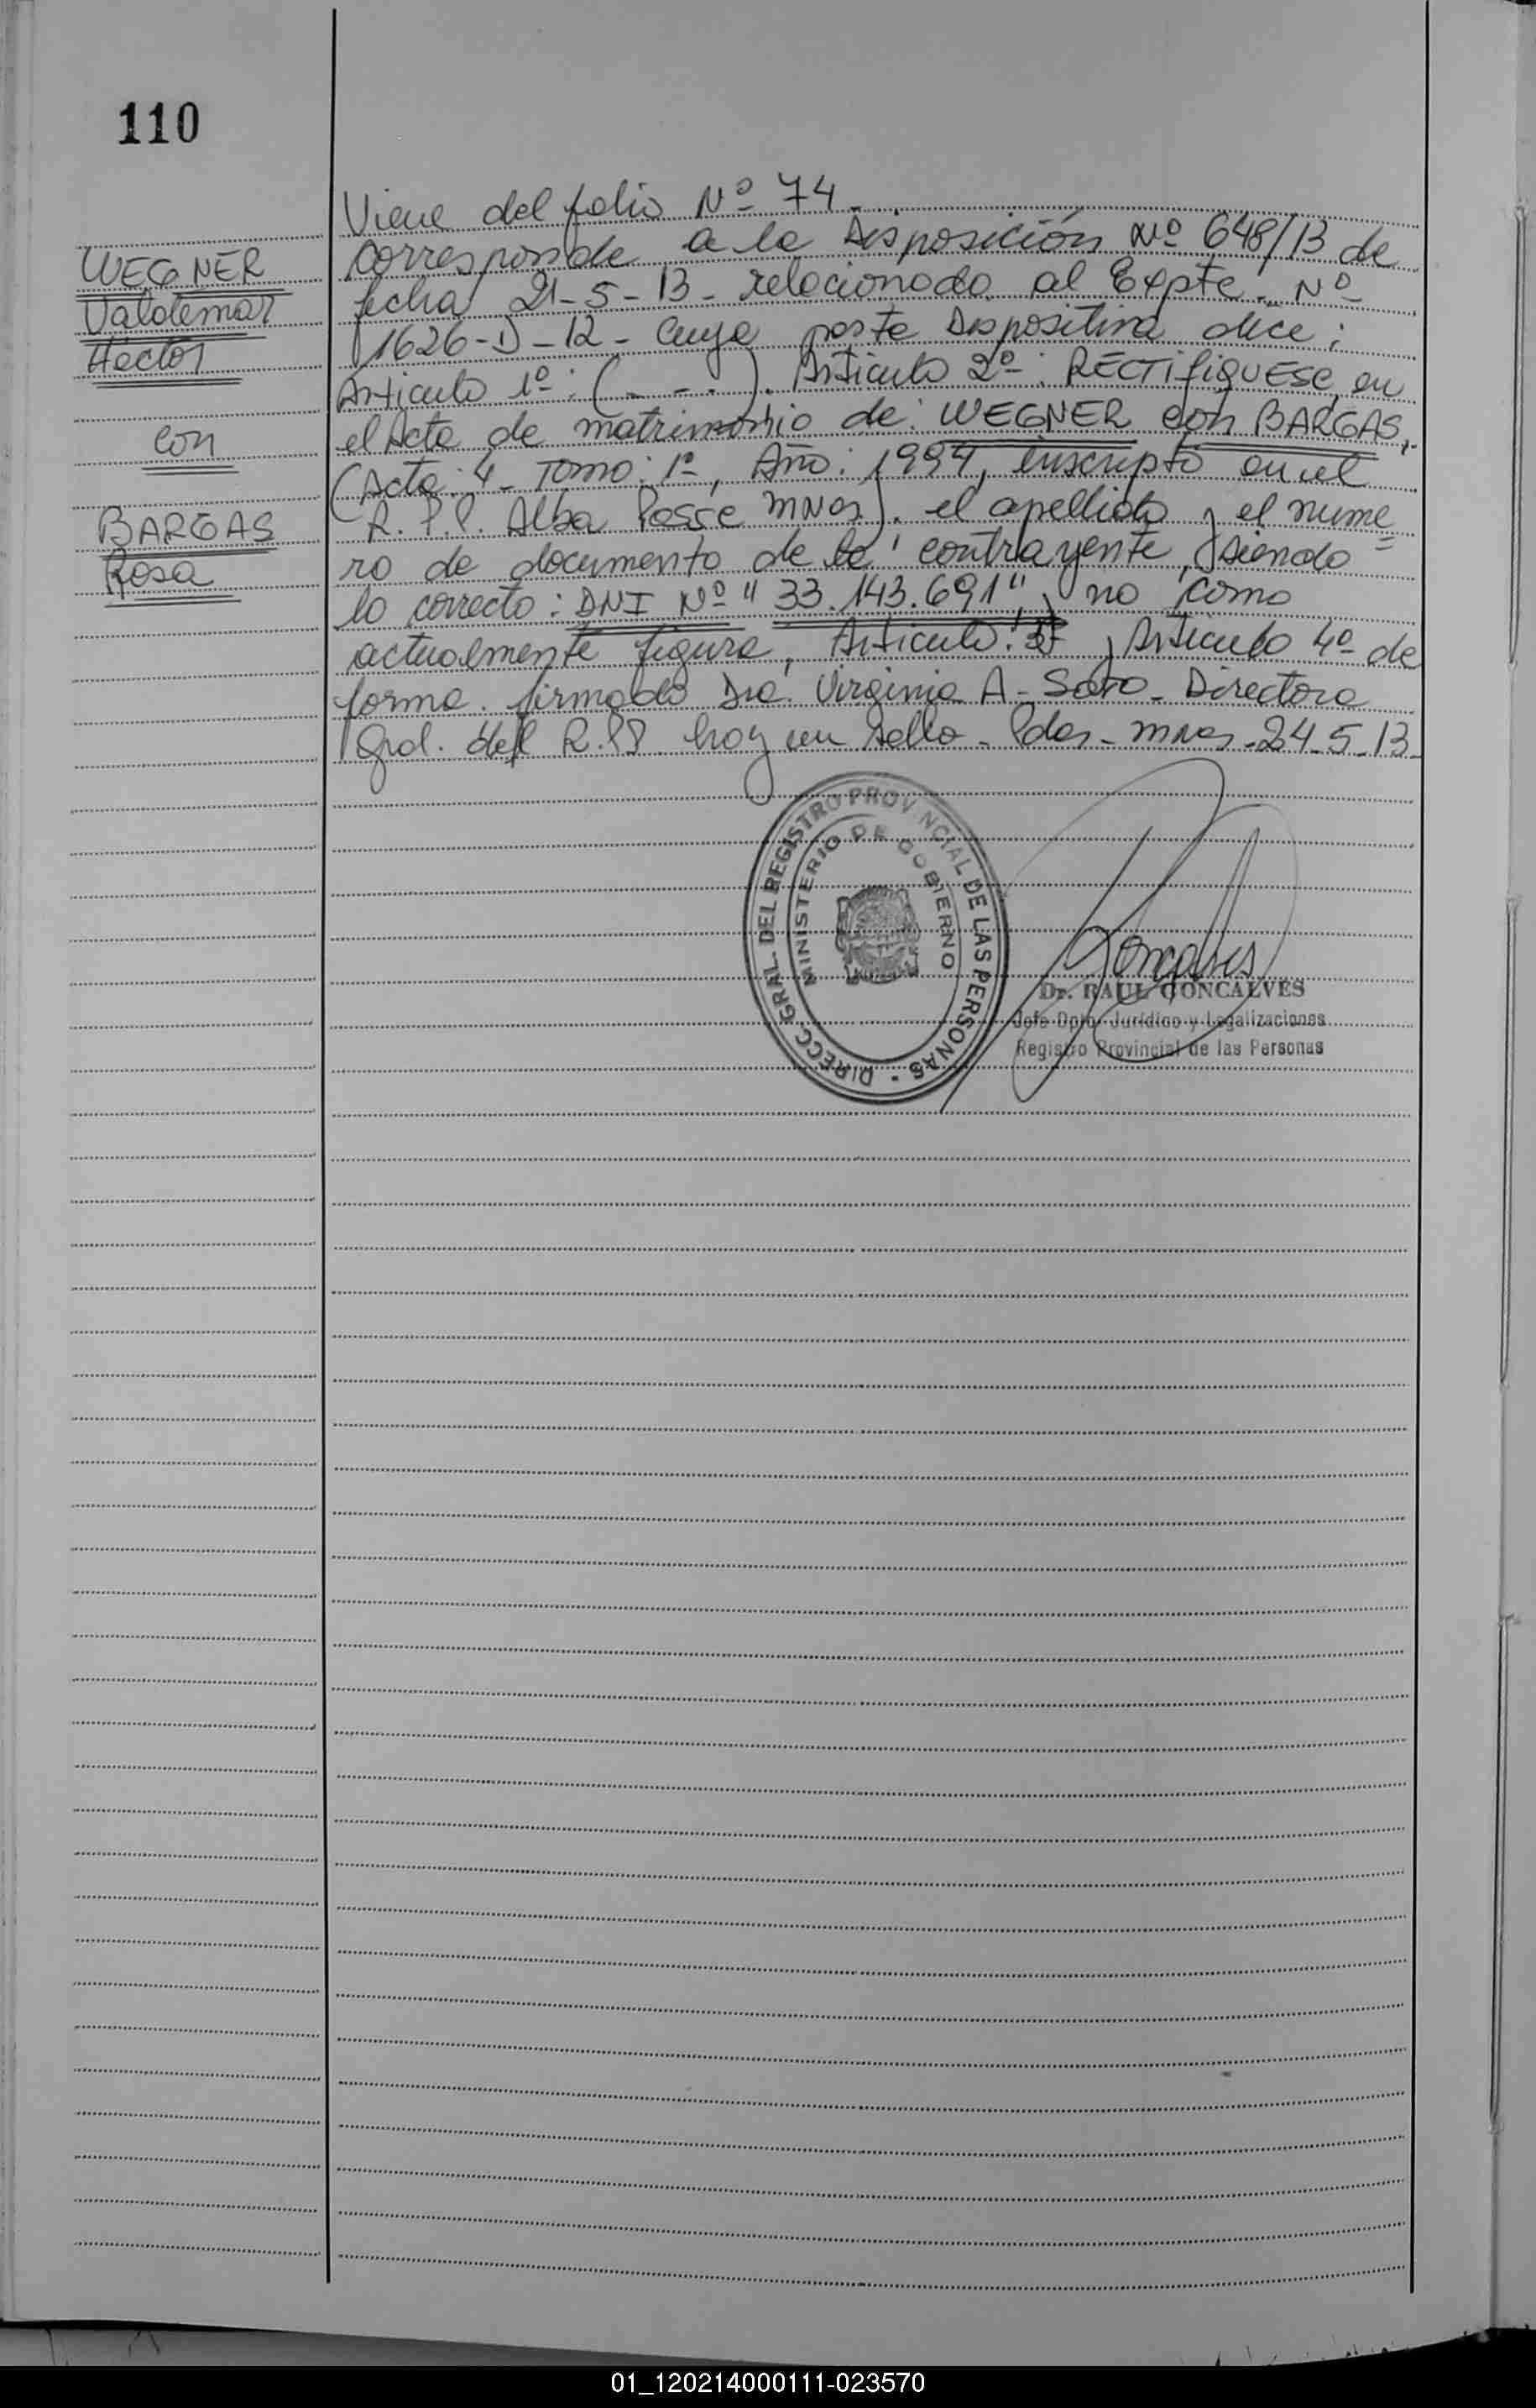 110
WEGNER
Valdemar
Héctor
con
BARGAS
Rosa
Viene del folio Nº 74.
Corresponde a la Disposición Nº 648/13 de
fecha 21-5-13- relacionado al Expte. Nº
1626-D-12- Cuya parte Dispositiva dice:
Articulo 1º: (- - -). Articulo 2º: RECTIFIQUESE, en
el Acta de matrimonio de: WEGNER con BARGAS,
(Acta: 4- Tomo: 1º, Año: 1994, inscripto en el
R.P.P. Alba Posse mnes). el apellido y el nume
ro de documento de la contrayente, siendo
lo correcto: DNI Nº "33.143.691", y no como
actualmente figura, Articulo: 3º y Articulo 4º de
forma. firmado Dra. Virginia A- Soto- Directora
Gral. del R.P.P. hay un sello- Pdas- mnes-24-5-13-
DIRECC. GRAL. DEL REGISTRO PROVINCIAL DE LAS PERSONAS -
MINISTERIO DE GOBIERNO
Goncalves
Dr. RAUL GONCALVES
Jefe Dpto. Jurídico y Legalizaciones
Registro Provincial de las Personas
01_120214000111-023570